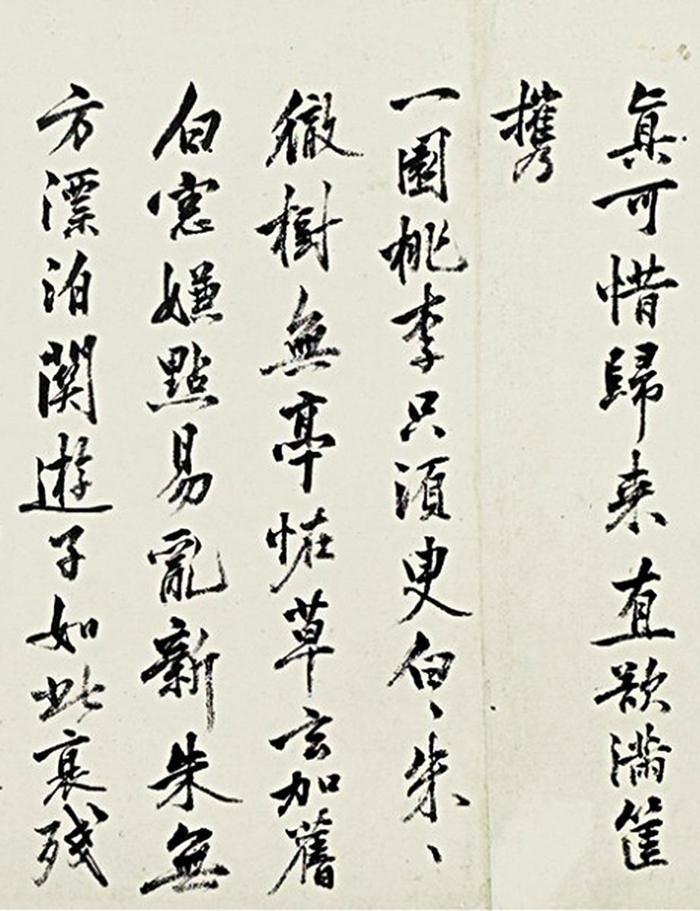 真可惜歸来直欲滿筐
攜
一園桃李只須臾白、朱、
徹樹無亭恠草玄加舊
白窓嫌點易亂新朱無
方漂泊関遊子如此衰殘